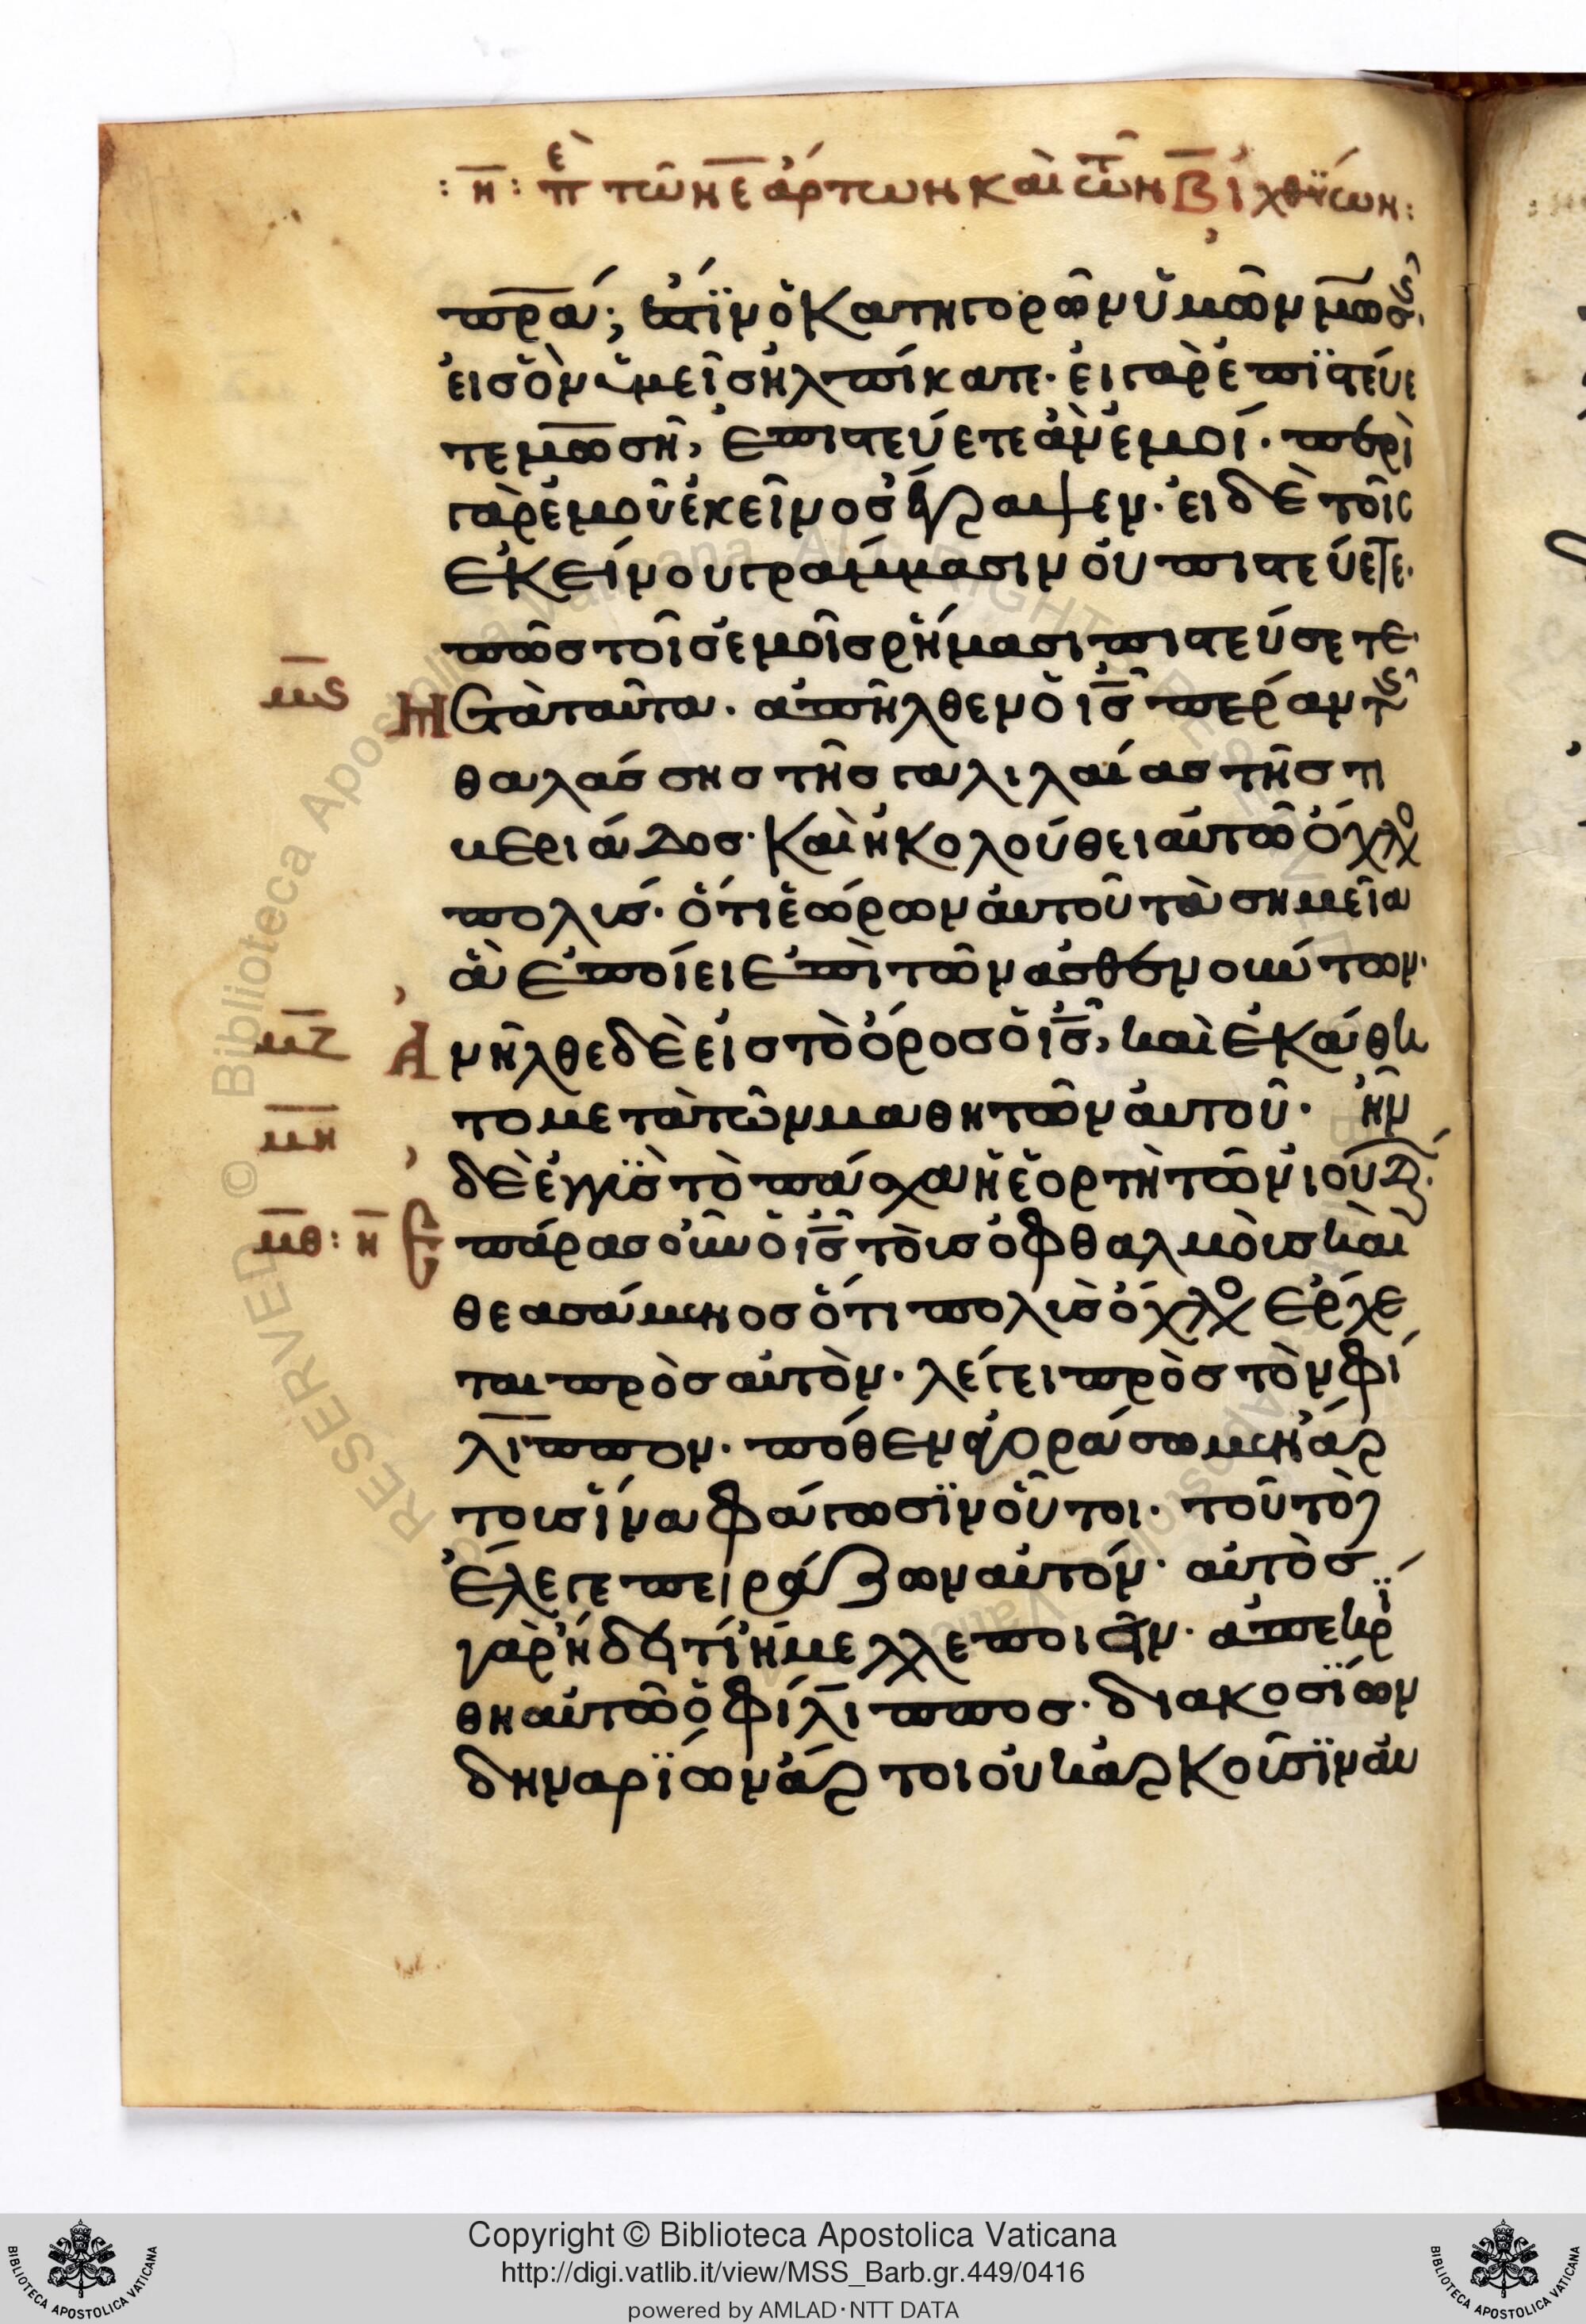 : η : ἐπ τῶν ε ἄρτων καὶ τῶν β ἰχθύων :
πρα; ἔστϊν ὁ κατηγορῶν ὑμῶν μωσῆς
εἰς ὃν ὑμεῖς ἠλπίκατε· εἰ γὰρ ἐπϊστεύε
τε μωσῆ, ἐπιστεύετε ἂν ἐμοί· περὶ
γὰρ ἐμοῦ ἐκεῖνος ἔγραψεν· εἰ δὲ τοῖς
ἐκείνου γράμμασιν οὐ πιστεύετε·
πῶς τοῖς ἐμοῖς ῥήμασι πιστεύσετε·
μϛ Μετὰ ταῦτα· ἀπῆλθεν ὁ ις πέραν τῆς
θαλάσσης τῆς γαλιλαίας τῆς τι
βεριάδος· καὶ ἠκολούθει αὐτῶ ὄχλο
πολύς· ὅτι ἑώρων αὐτοῦ τὰ σημεῖα
ἃ ἐποίει ἐπὶ τῶν ἀσθενούντων·
μζ Ἀνῆλθε δὲ εἰς τὸ ὄρος ὁ ις, καὶ ἐκάθη
το μετὰ τῶν μαθητῶν αὐτοῦ· ἦν
μη δὲ ἐγγϊς τὸ πάσχα ἡ ἑορτὴ τῶν ἰουδ·
μθ : η Ἐπάρας οὖν ὁ ις τοὺς ὀφθαλμοὺς καὶ
θεασάμενος ὅτι πολὺς ὄχλο ἔρχε
ται πρὸς αὐτὸν· λέγει πρὸς τὸν φί
λιππον· πόθεν ἀγοράσωμεν ἄρ
τους ἵνα φάγωσϊν οὗτοι· τοῦτο
ἔλεγε πειράζων αὐτόν· αὐτὸς
γὰρ ἤδει τί ἤμελλε ποιεῖν· ἀπεκρϊ
θη αὐτῶ ὁ φίλιππος· διακοσϊων
δηναρϊων ἄρτοι οὐκ ἀρκοῦσϊν αὐ
Copyright © Biblioteca Apostolica Vaticana
http://digi.vatlib.it/view/MSS_Barb.gr.449/0416
powered by AMLAD·NTT DATA
BIBLIOTECA APOSTOLICA VATICANA
BIBLIOTECA APOSTOLICA VATICANA